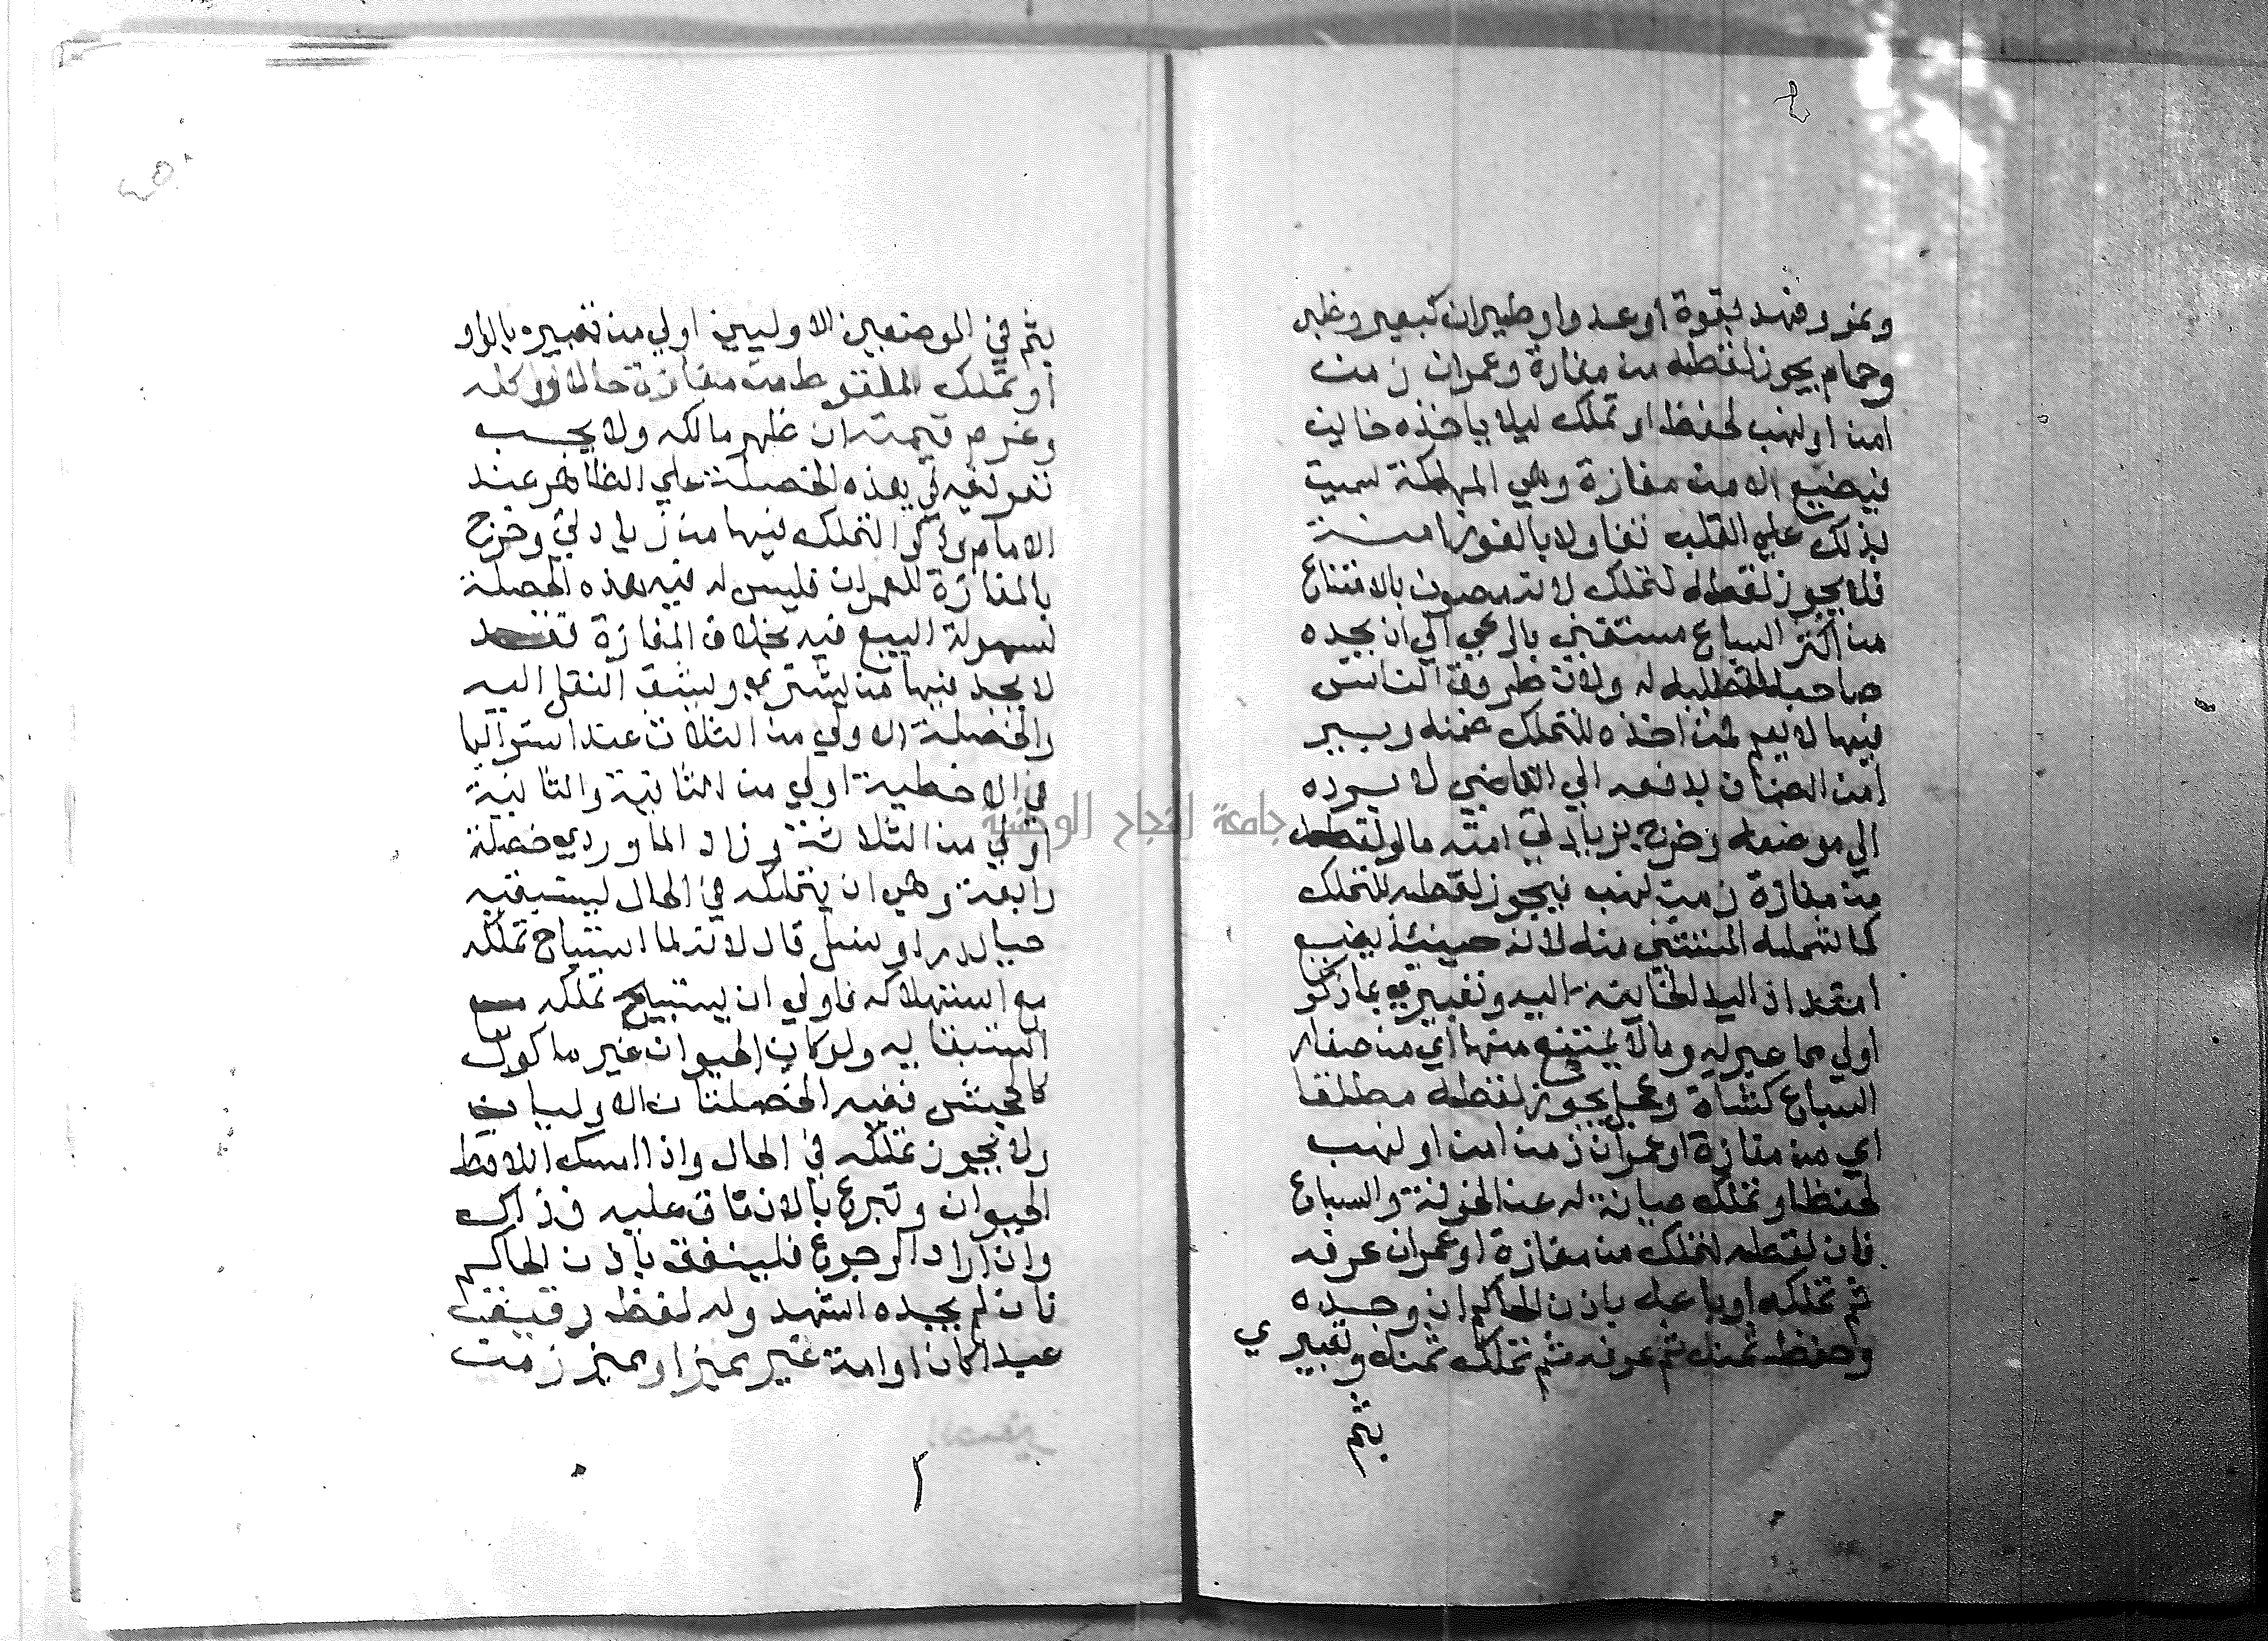 ونمر وفهد بقوة او عدو او طيران كبعير وظبي
وحمام يجوز لقطه من مفازة وعمران زمن
امن او نهب لحفظ او تملك ليلا ياخذه خاين
فيضيع الا من مفازة وهي المهلكة سميت
بذلك علي القلب تفاولا بالفوز امنة
فلا يجوز لقطه لتملك لانه مصون بالامتناع
من اكثر السباع مستغني بالرعي الي ان يجده
صاحبه لتطلبه له ولان طروق الناس
فيها لا يعم فمن اخذه للتملك ضمنه ويبرا
من الضمان بدفعه الي القاضي لا برده
الي موضعه وخرج بزيادتي امنه ما لو لقطه
من مفازة زمن نهب فيجوز لقطه للتملك
كما شمله المستثني منه لانه حينئذ يضيع
امتداد اليد الخاينة اليه وتعبيري بما ذكر
اولي مما عبر به وما لا يمتنع منها اي من صغار
السباع كشاة وعجل يجوز لقطه مطلقا
اي من مفازة او عمران زمن امن او نهب
لحفظ او تملك صيانة له عن الخونة والسباع
فان لقطه لتملك من مفازة او عمران عرفه
ثم تملكه او باعه باذن الحاكم ان وجده
وحفظ ثمنه ثم عرفه ثم تملك ثمنه وتعبيري
بثم
بثم في الموضعين الاوليين اولي من تعبيره بالواو
او تملك الملقوط من مفازة حالا واكله
وغرم قيمته ان ظهر مالكه ولا يجب
تعريفه في هذه الخصلة علي الظاهر عند
الامام وذكر التملك فيها من زيادتي وخرج
بالمفازة العمران فليس له فيه هذه الخصلة
لسهولة البيع فيه بخلاف المفازة فقد
لا يجد فيها من يشتريه ويشق النقل اليه
والخصلة الاولي من الثلاث عند استوايها
في الاحظية اولي من الثانية والثانية
اولي من الثلاثة وزاد الماوردي خصلة
رابعة وهي ان يتملكه في الحال ليستبقيه
حيا لدر او نسل قال لانه لما استباح تملكه
مع استهلاكه فاولي ان يستبيح تملكه مع
استبقايه ولو كان الحيوان غير ماكول
كالجحش ففيه الخصلتان الاوليان
ولا يجوز تملكه في الحال واذا امسك اللاقط
الحيوان وتبرع بالانفاق عليه فذاك
وان اراد الرجوع فلينفق باذن الحاكم
فان لم يجده اشهد وله لقط رقيق
عبدا كان او امة غير مميز او مميز زمن
جامعة النجاح الوطنية